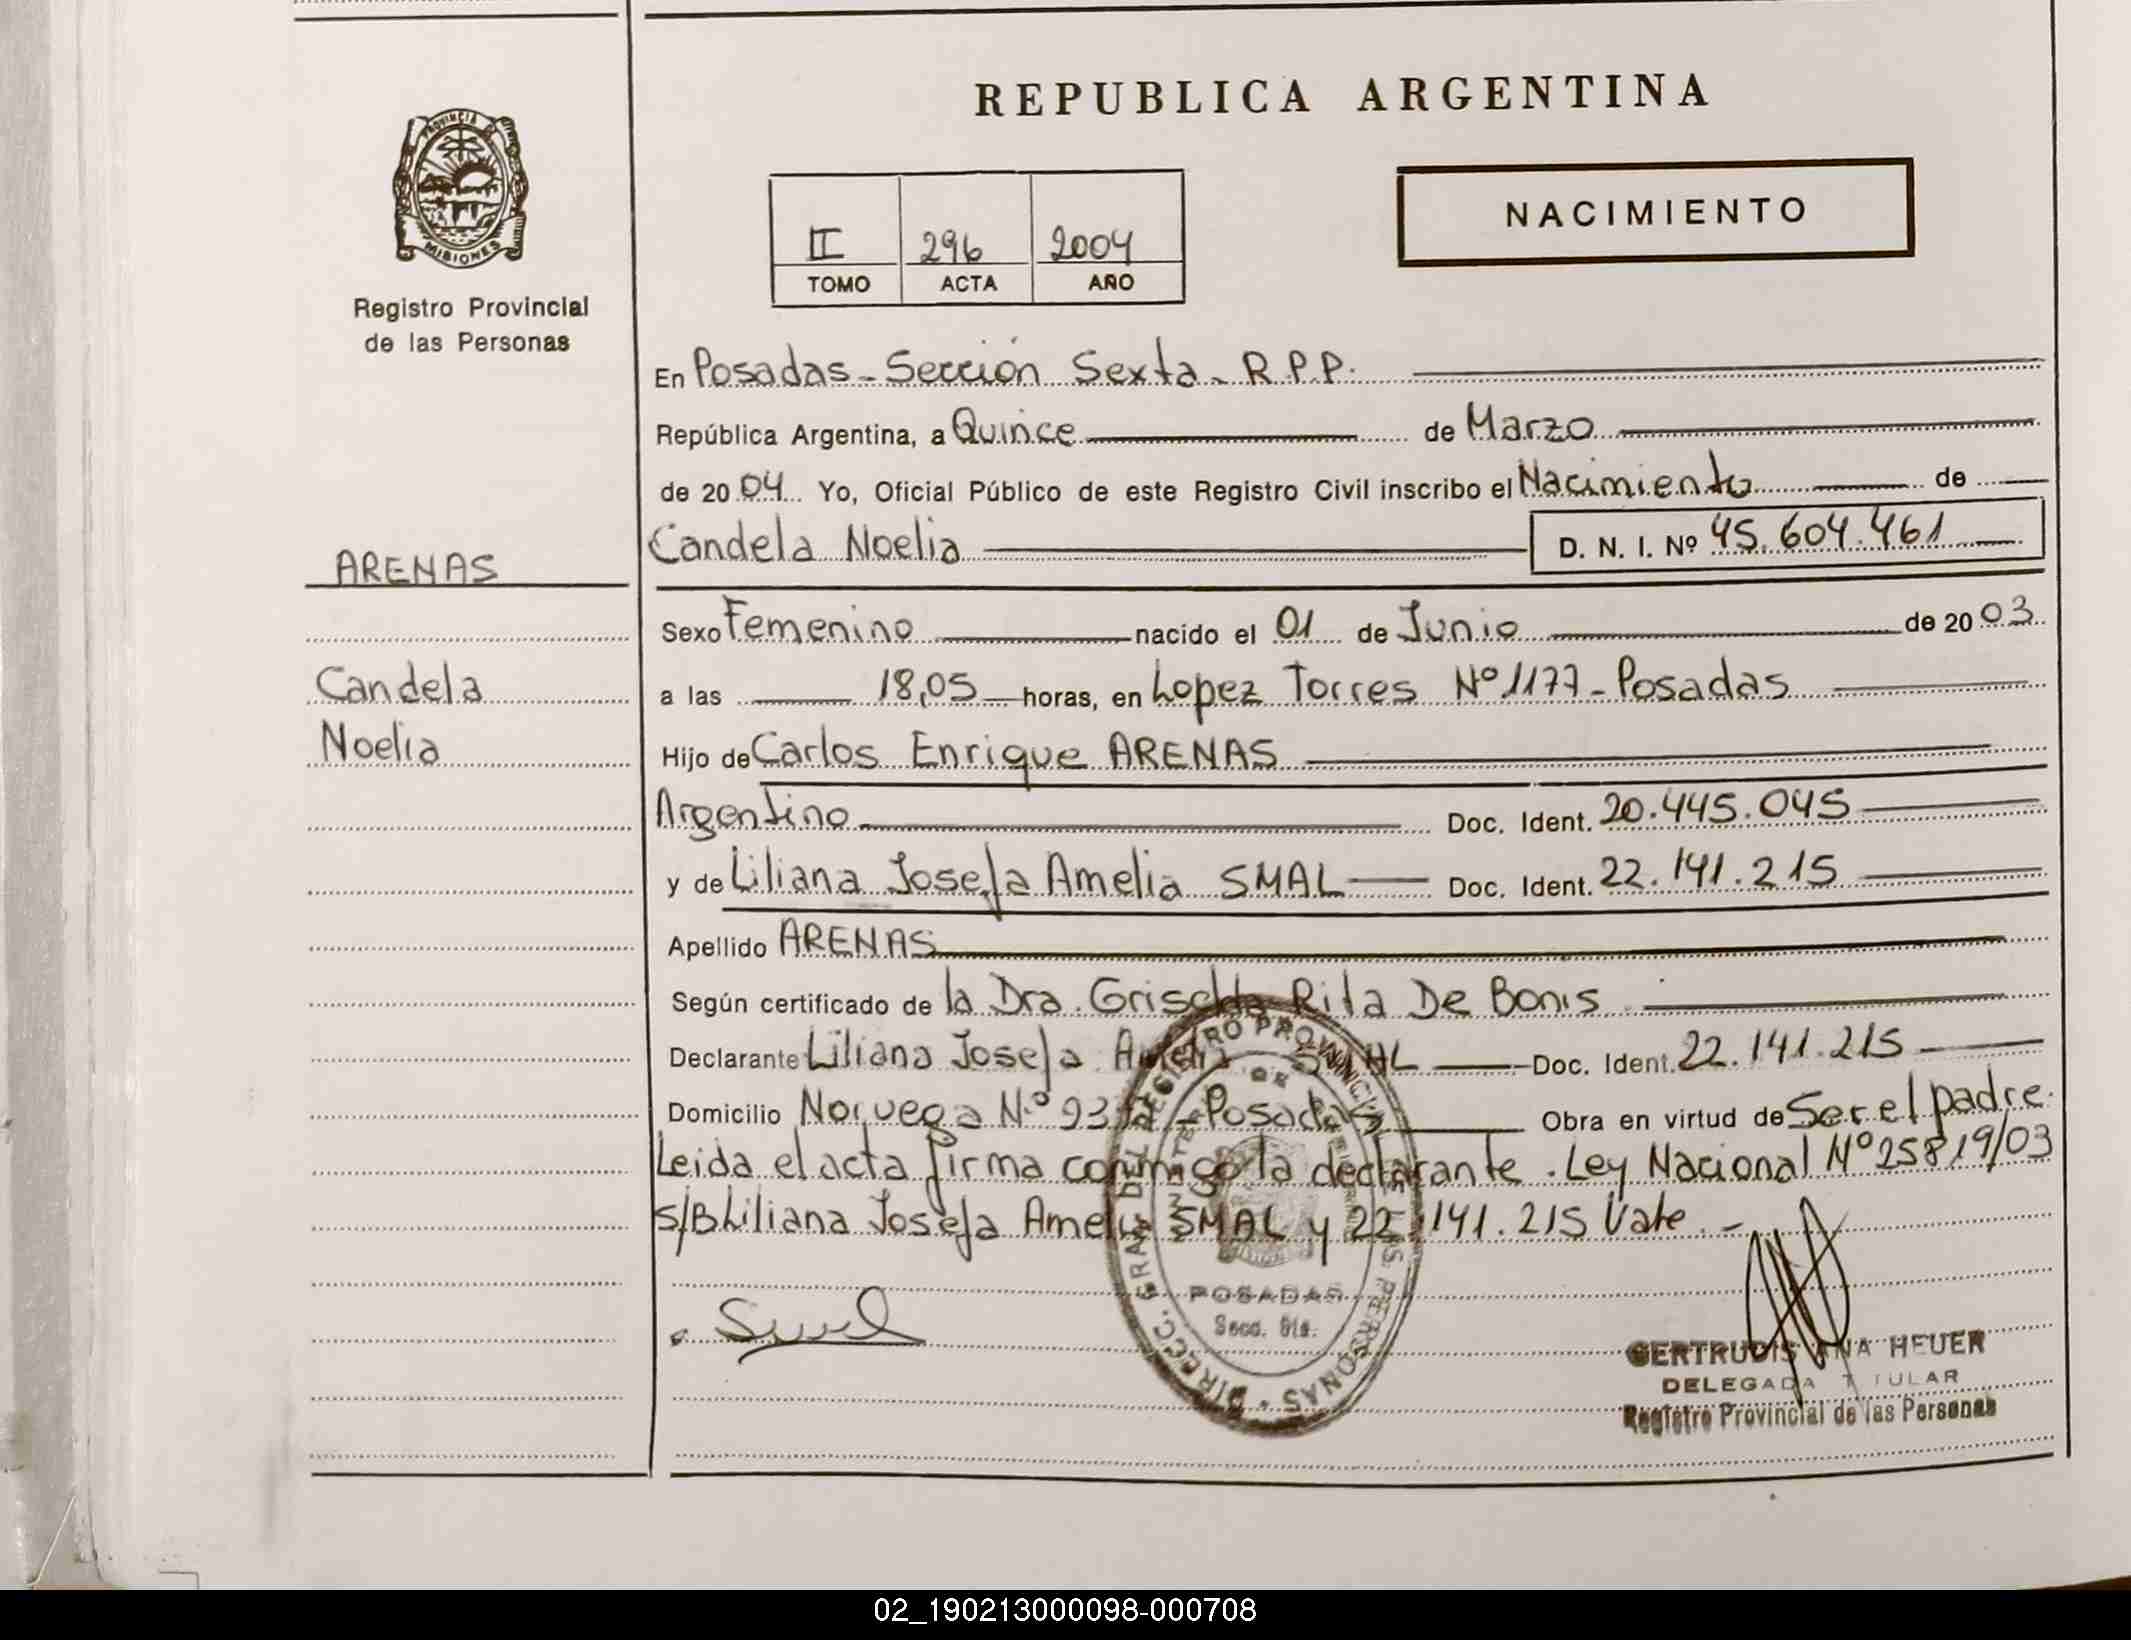 PROVINCIA DE
MISIONES
Registro Provincial
de las Personas
ARENAS
Candela
Noelia
REPUBLICA ARGENTINA
II 296 2004
TOMO ACTA AÑO
NACIMIENTO
En Posadas - Sección Sexta - R.P.P.
República Argentina, a Quince de Marzo
de 2004 Yo, Oficial Público de este Registro Civil inscribo el Nacimiento de
Candela Noelia D. N. I. Nº 45.604.461
Sexo Femenino nacido el 01 de Junio de 2003
a las 18,05 horas, en Lopez Torres Nº 1177 - Posadas
Hijo de Carlos Enrique ARENAS
Argentino Doc. Ident. 20.445.045
y de Liliana Josefa Amelia SMAL Doc. Ident. 22.141.215
Apellido ARENAS
Según certificado de la Dra. Griselda Rita De Bonis
Declarante Liliana Josefa Amelia SMAL Doc. Ident. 22.141.215
Domicilio Noruega Nº - Posadas Obra en virtud de Ser el padre
Leida el acta firma conmigo la declarante. Ley Nacional Nº 25819/03
S/B Liliana Josefa Amelia SMAL y 22.141.215 Vale. -
DIRECC. GRAL. DEL REGISTRO PROVINCIAL DE LAS PERSONAS
POSADAS
Secc. 6ta.
GERTRUDIS ANA HEUER
DELEGADA TITULAR
Registro Provincial de las Personas
02_190213000098-000708